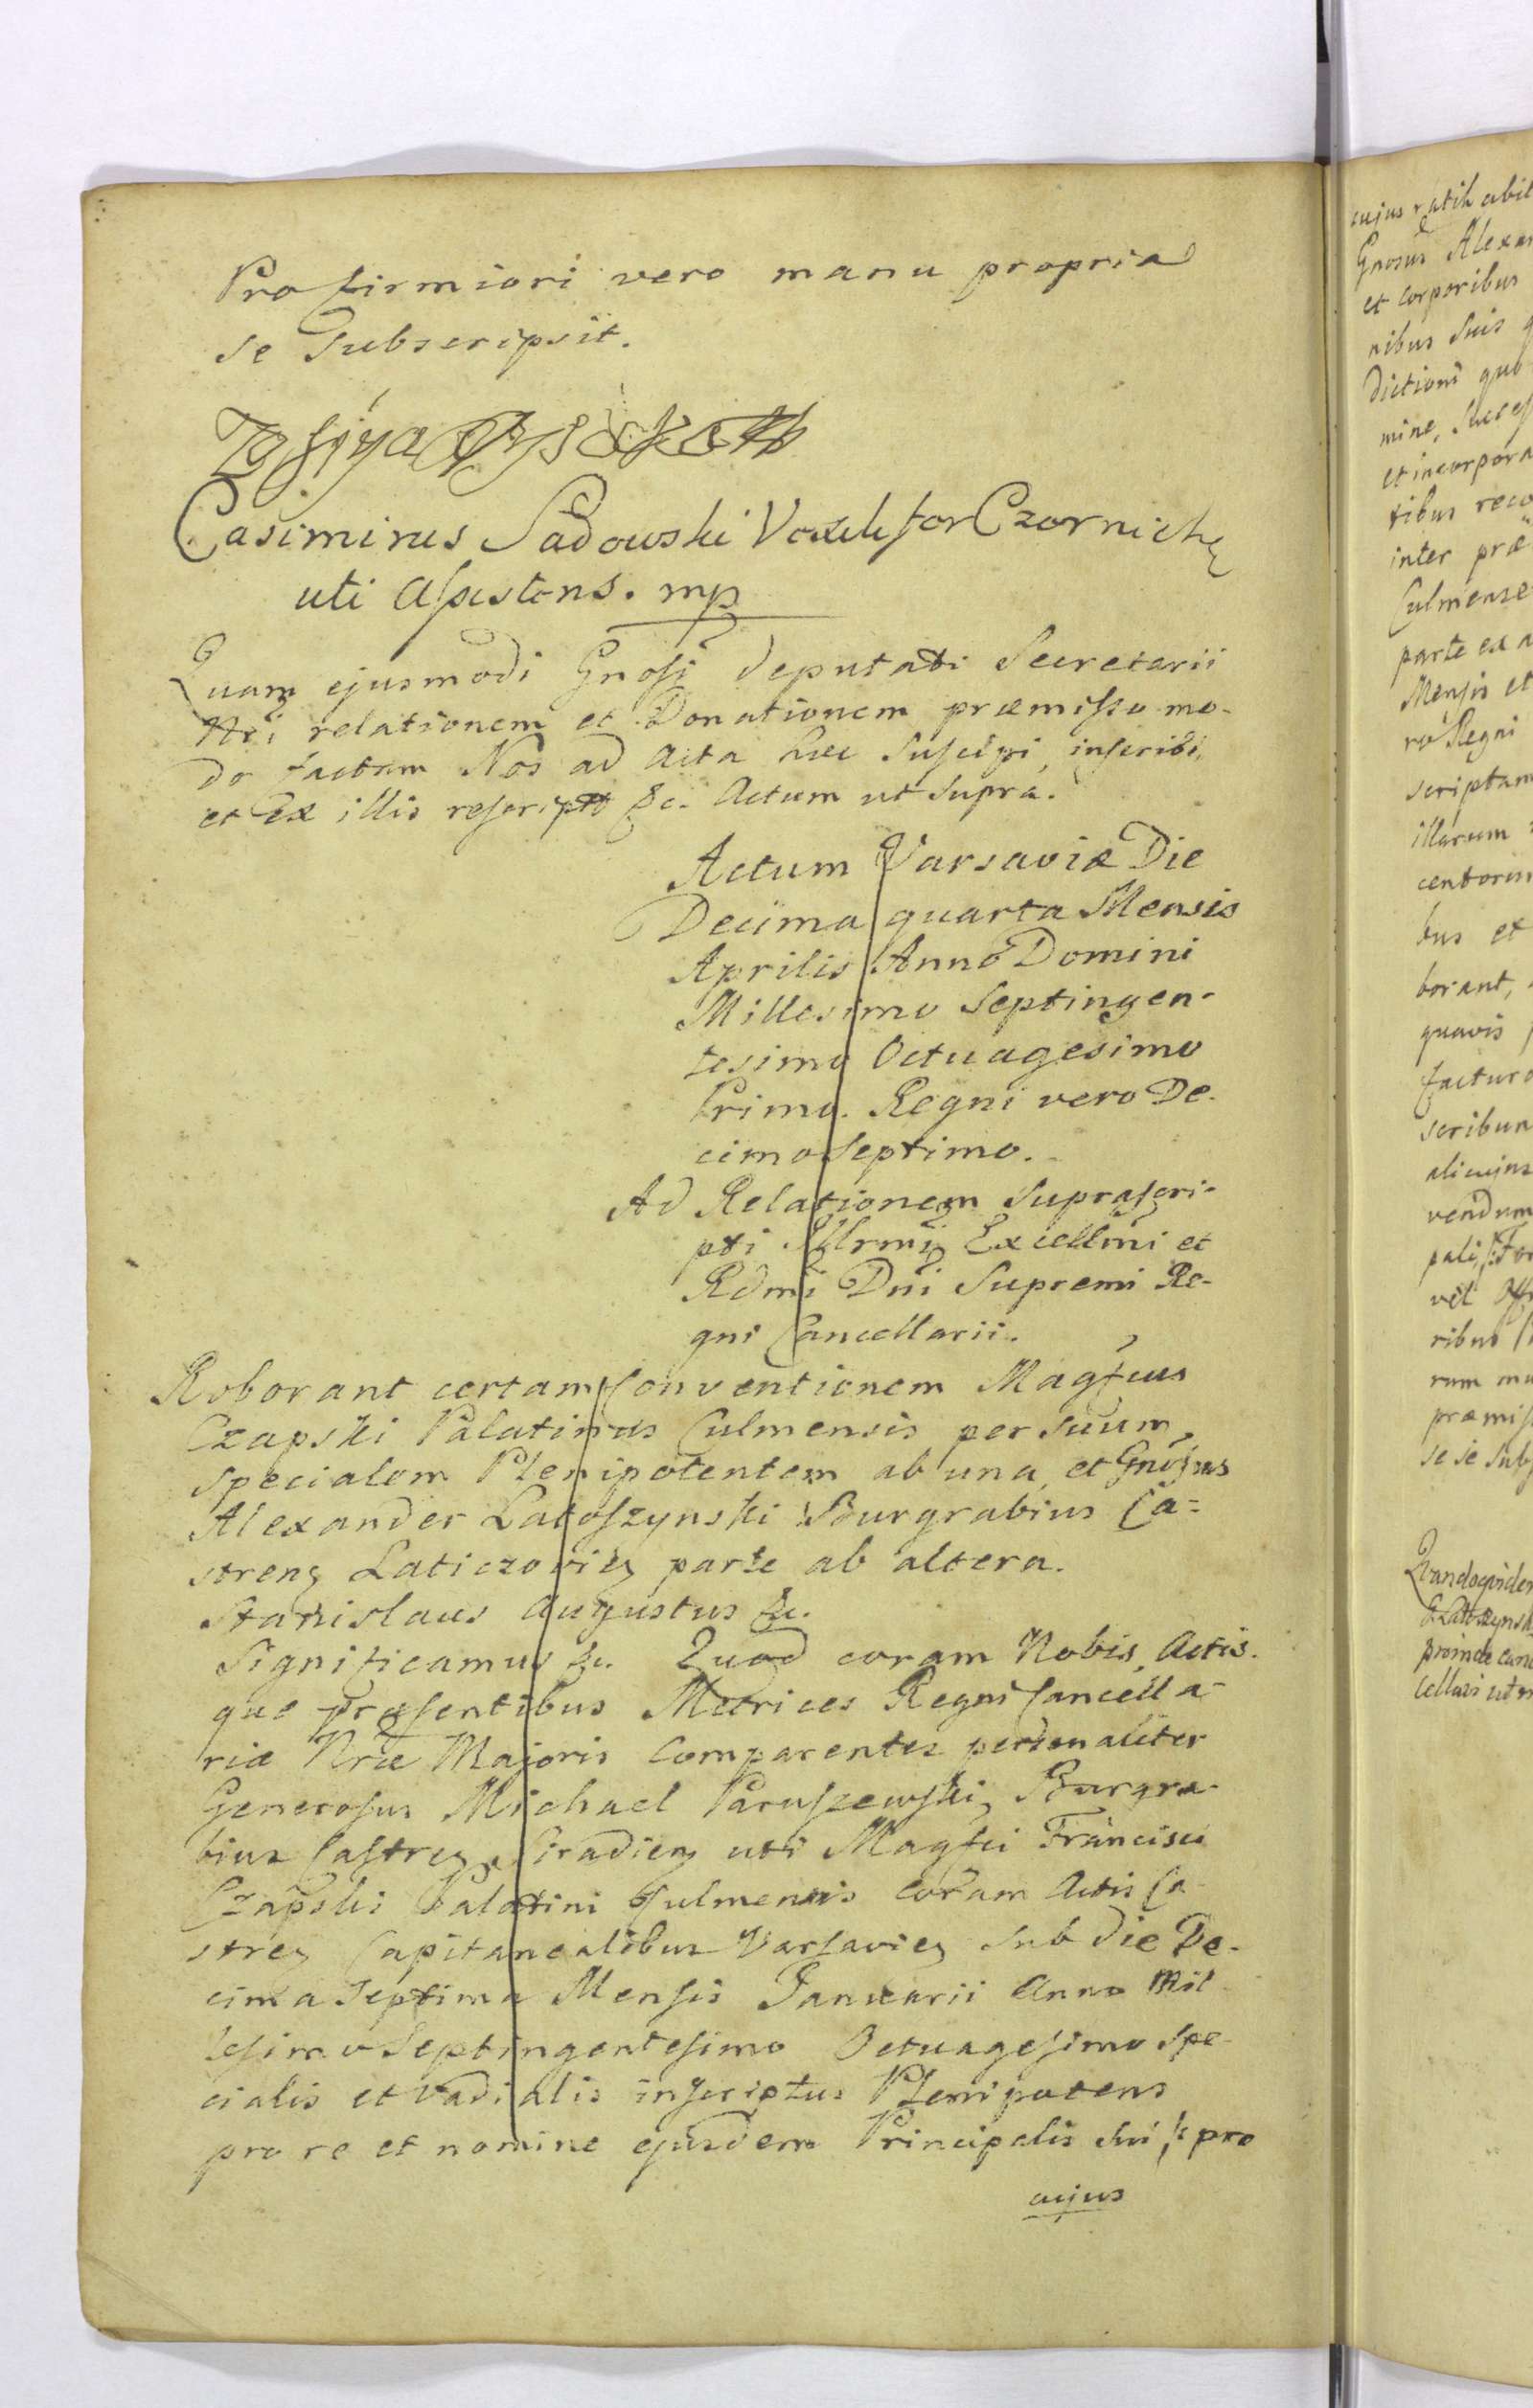 Pro firmiori vero manu propria
se Subscripsit.
Casimirus Sadowski Vexilifor Czerniche
uti Assistens. mp
Quam ejusmodi Gnosi deputati Secretarii
Nri relationem et Donationem præmisso mo-
do factam Nos ad Acta hæc suscipi, inscribi,
et Ex illis rescripto &c. Actum ut Supra.
Actum Varsaviæ Die
Decima quarta Mensis
Aprilis Anno Domini
Millesimo Septingen-
tesimo Octuagesimo
Primo. Regni vero De-
cimo Septimo.
Ad Relationem Suprascri-
pti Illrmi Excellmi et
Rdmi Dni Supremi Re-
gni Cancellarii.
Roborant certam Conventionem Magfcus
Czapski Palatinus Culmensis per suum
specialem Plenipotentem ab una, et Gnosus
Alexander Latoszynski Burgrabius Ca=
streng Laticzovien parte ab altera.
Stanislaus Augustus &c.
Significamus &c. Quod coram Nobis, Actis-
que præsentibus Metrices Regni Cancella-
riæ Nræ Majoris Comparentes personaliter
Generosus Michael Paruszewski, Burgra-
bius Castren Siradien uti Magfci Francisci
Czapski Palatini Culmensis coram Actis Ca-
stren Capitanealibus Varsavien sub die De-
cima Septima Mensis Januarii Anno Mil-
lesimo Septingentesimo Octuagesimo spe-
cialis et vadialis inscriptus Plenipotens
pro re et nomine ejusdem Principalis sui, /: pro
cujus
cujus ratihabit
Gnosus Alexan
et corporibus
nibus suis
dictioni quo
mine, succes
et incorpora
tibus reco
inter præ
Culmense
parte ex a
Mensis et
ro Regni
scriptam
illarum
centorum
bus et
borant,
quavis
factura
scribun
alicujus
vendum
pali,
vel
ribus
rum mu
præmiss
se se sub
Quandoquidem
Latoszynsk
proinde canc
cellari